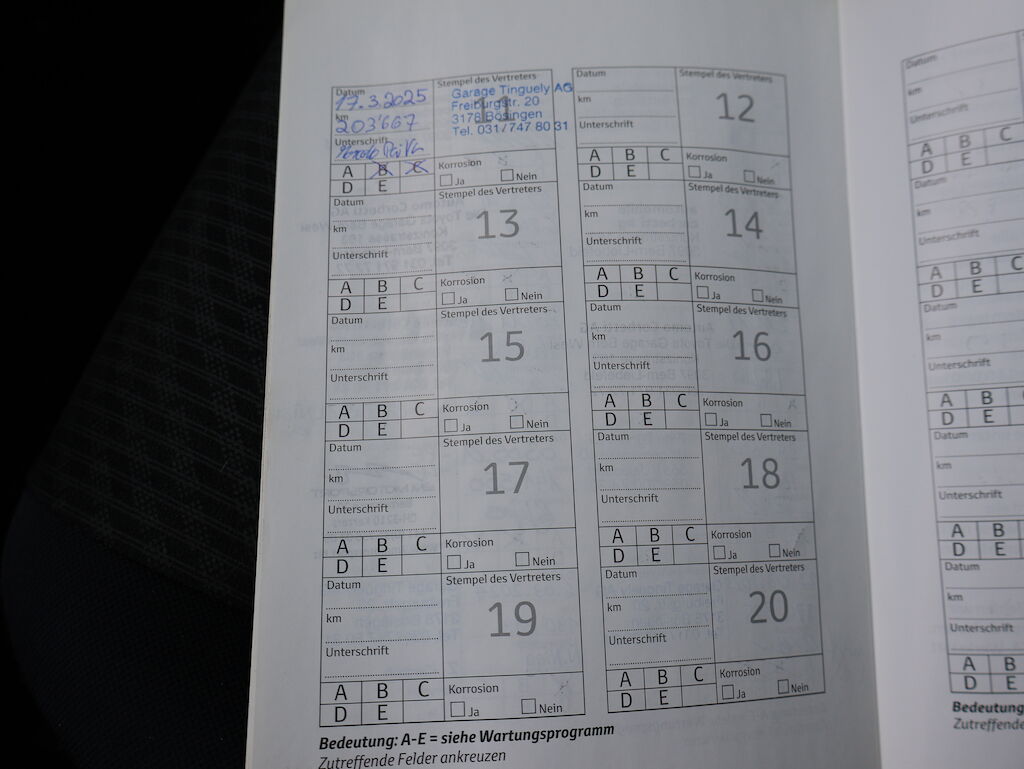 Datum
17.3.2025
km
203'667
Unterschrift
A B C
D E
Stempel des Vertreters
11
Garage Tinguely AG
Freiburgstr. 20
3178 Bösingen
Tel. 031/747 80 31
Korrosion
Ja Nein
Datum
km
Unterschrift
A B C
D E
Stempel des Vertreters
12
Korrosion
Ja Nein
Datum
km
Unterschrift
A B C
D E
Stempel des Vertreters
13
Korrosion
Ja Nein
Datum
km
Unterschrift
A B C
D E
Stempel des Vertreters
14
Korrosion
Ja Nein
Datum
km
Unterschrift
A B C
D E
Stempel des Vertreters
15
Korrosion
Ja Nein
Datum
km
Unterschrift
A B C
D E
Stempel des Vertreters
16
Korrosion
Ja Nein
Datum
km
Unterschrift
A B C
D E
Stempel des Vertreters
17
Korrosion
Ja Nein
Datum
km
Unterschrift
A B C
D E
Stempel des Vertreters
18
Korrosion
Ja Nein
Datum
km
Unterschrift
A B C
D E
Stempel des Vertreters
19
Korrosion
Ja Nein
Datum
km
Unterschrift
A B C
D E
Stempel des Vertreters
20
Korrosion
Ja Nein
Bedeutung: A-E = siehe Wartungsprogramm
Zutreffende Felder ankreuzen
Datum
km
Unterschrift
A B C
D E
Datum
km
Unterschrift
A B C
D E
Datum
km
Unterschrift
A B
D E
Datum
km
Unterschrift
A B
D E
Datum
km
Unterschrift
A B
D E
Bedeutung
Zutreffende